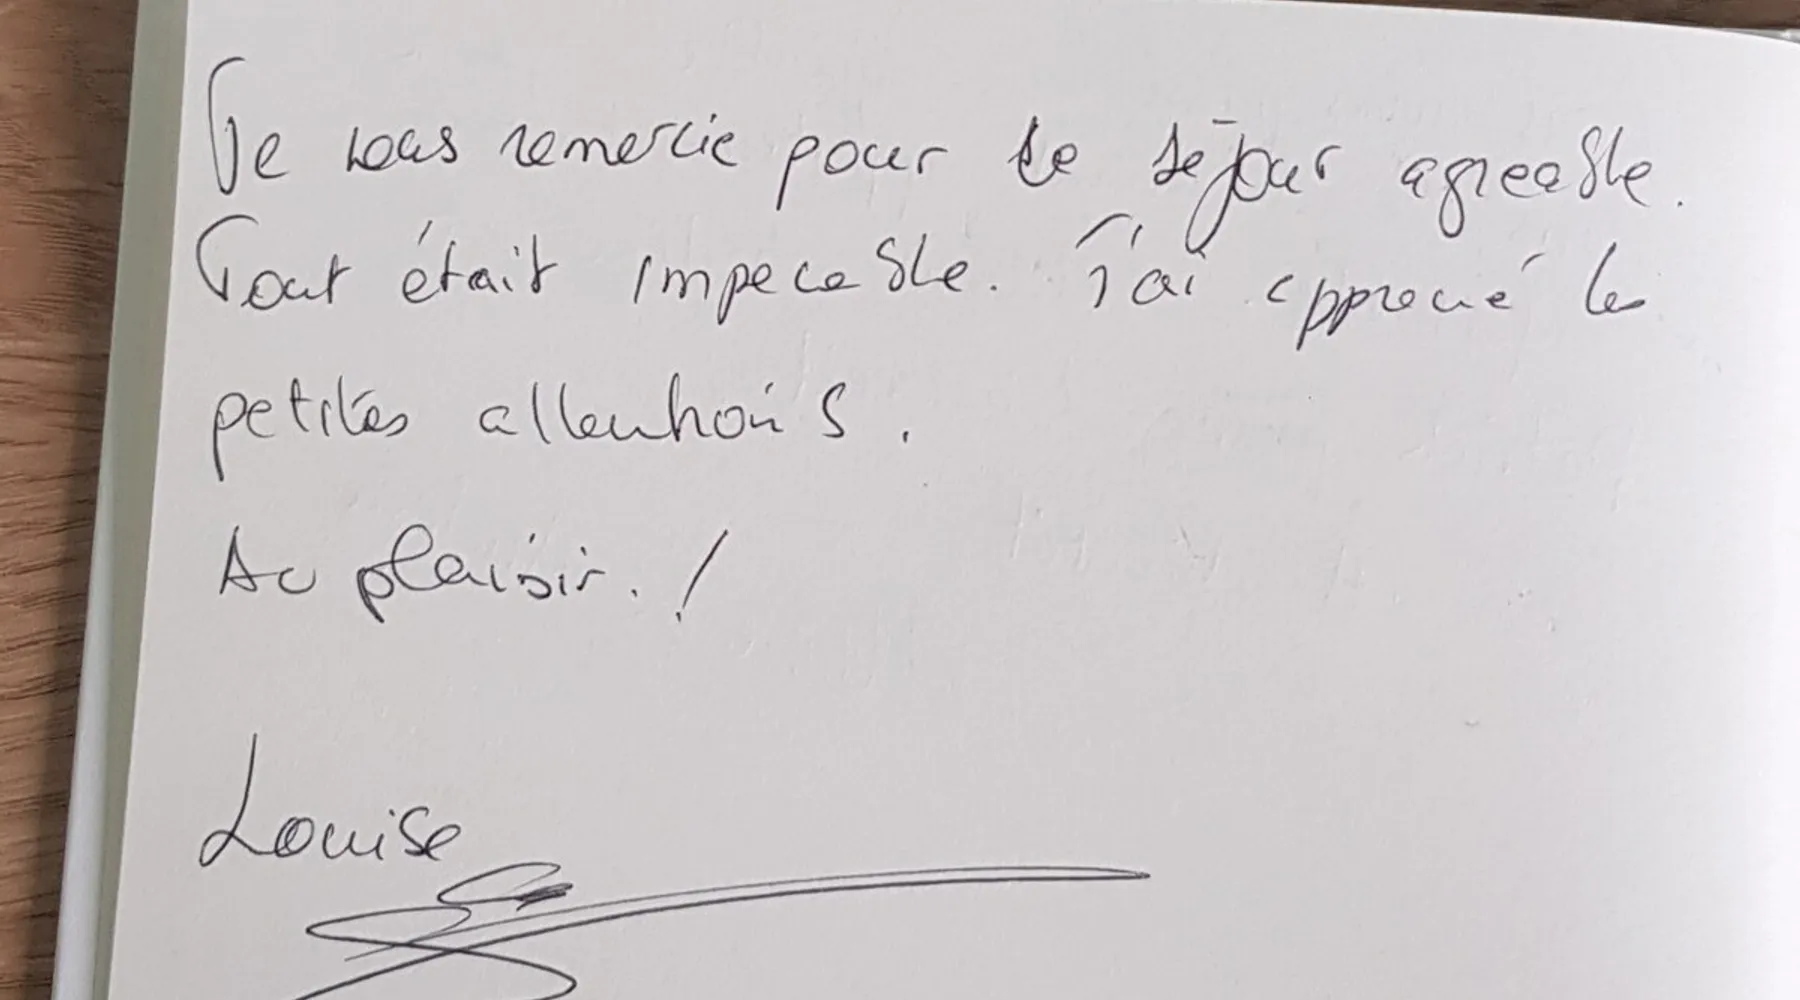 Je vous remercie pour ce séjour agreable.
Tout était impecable. J'ai apprecié les
petites attentions.
Au plaisir. !
Louise